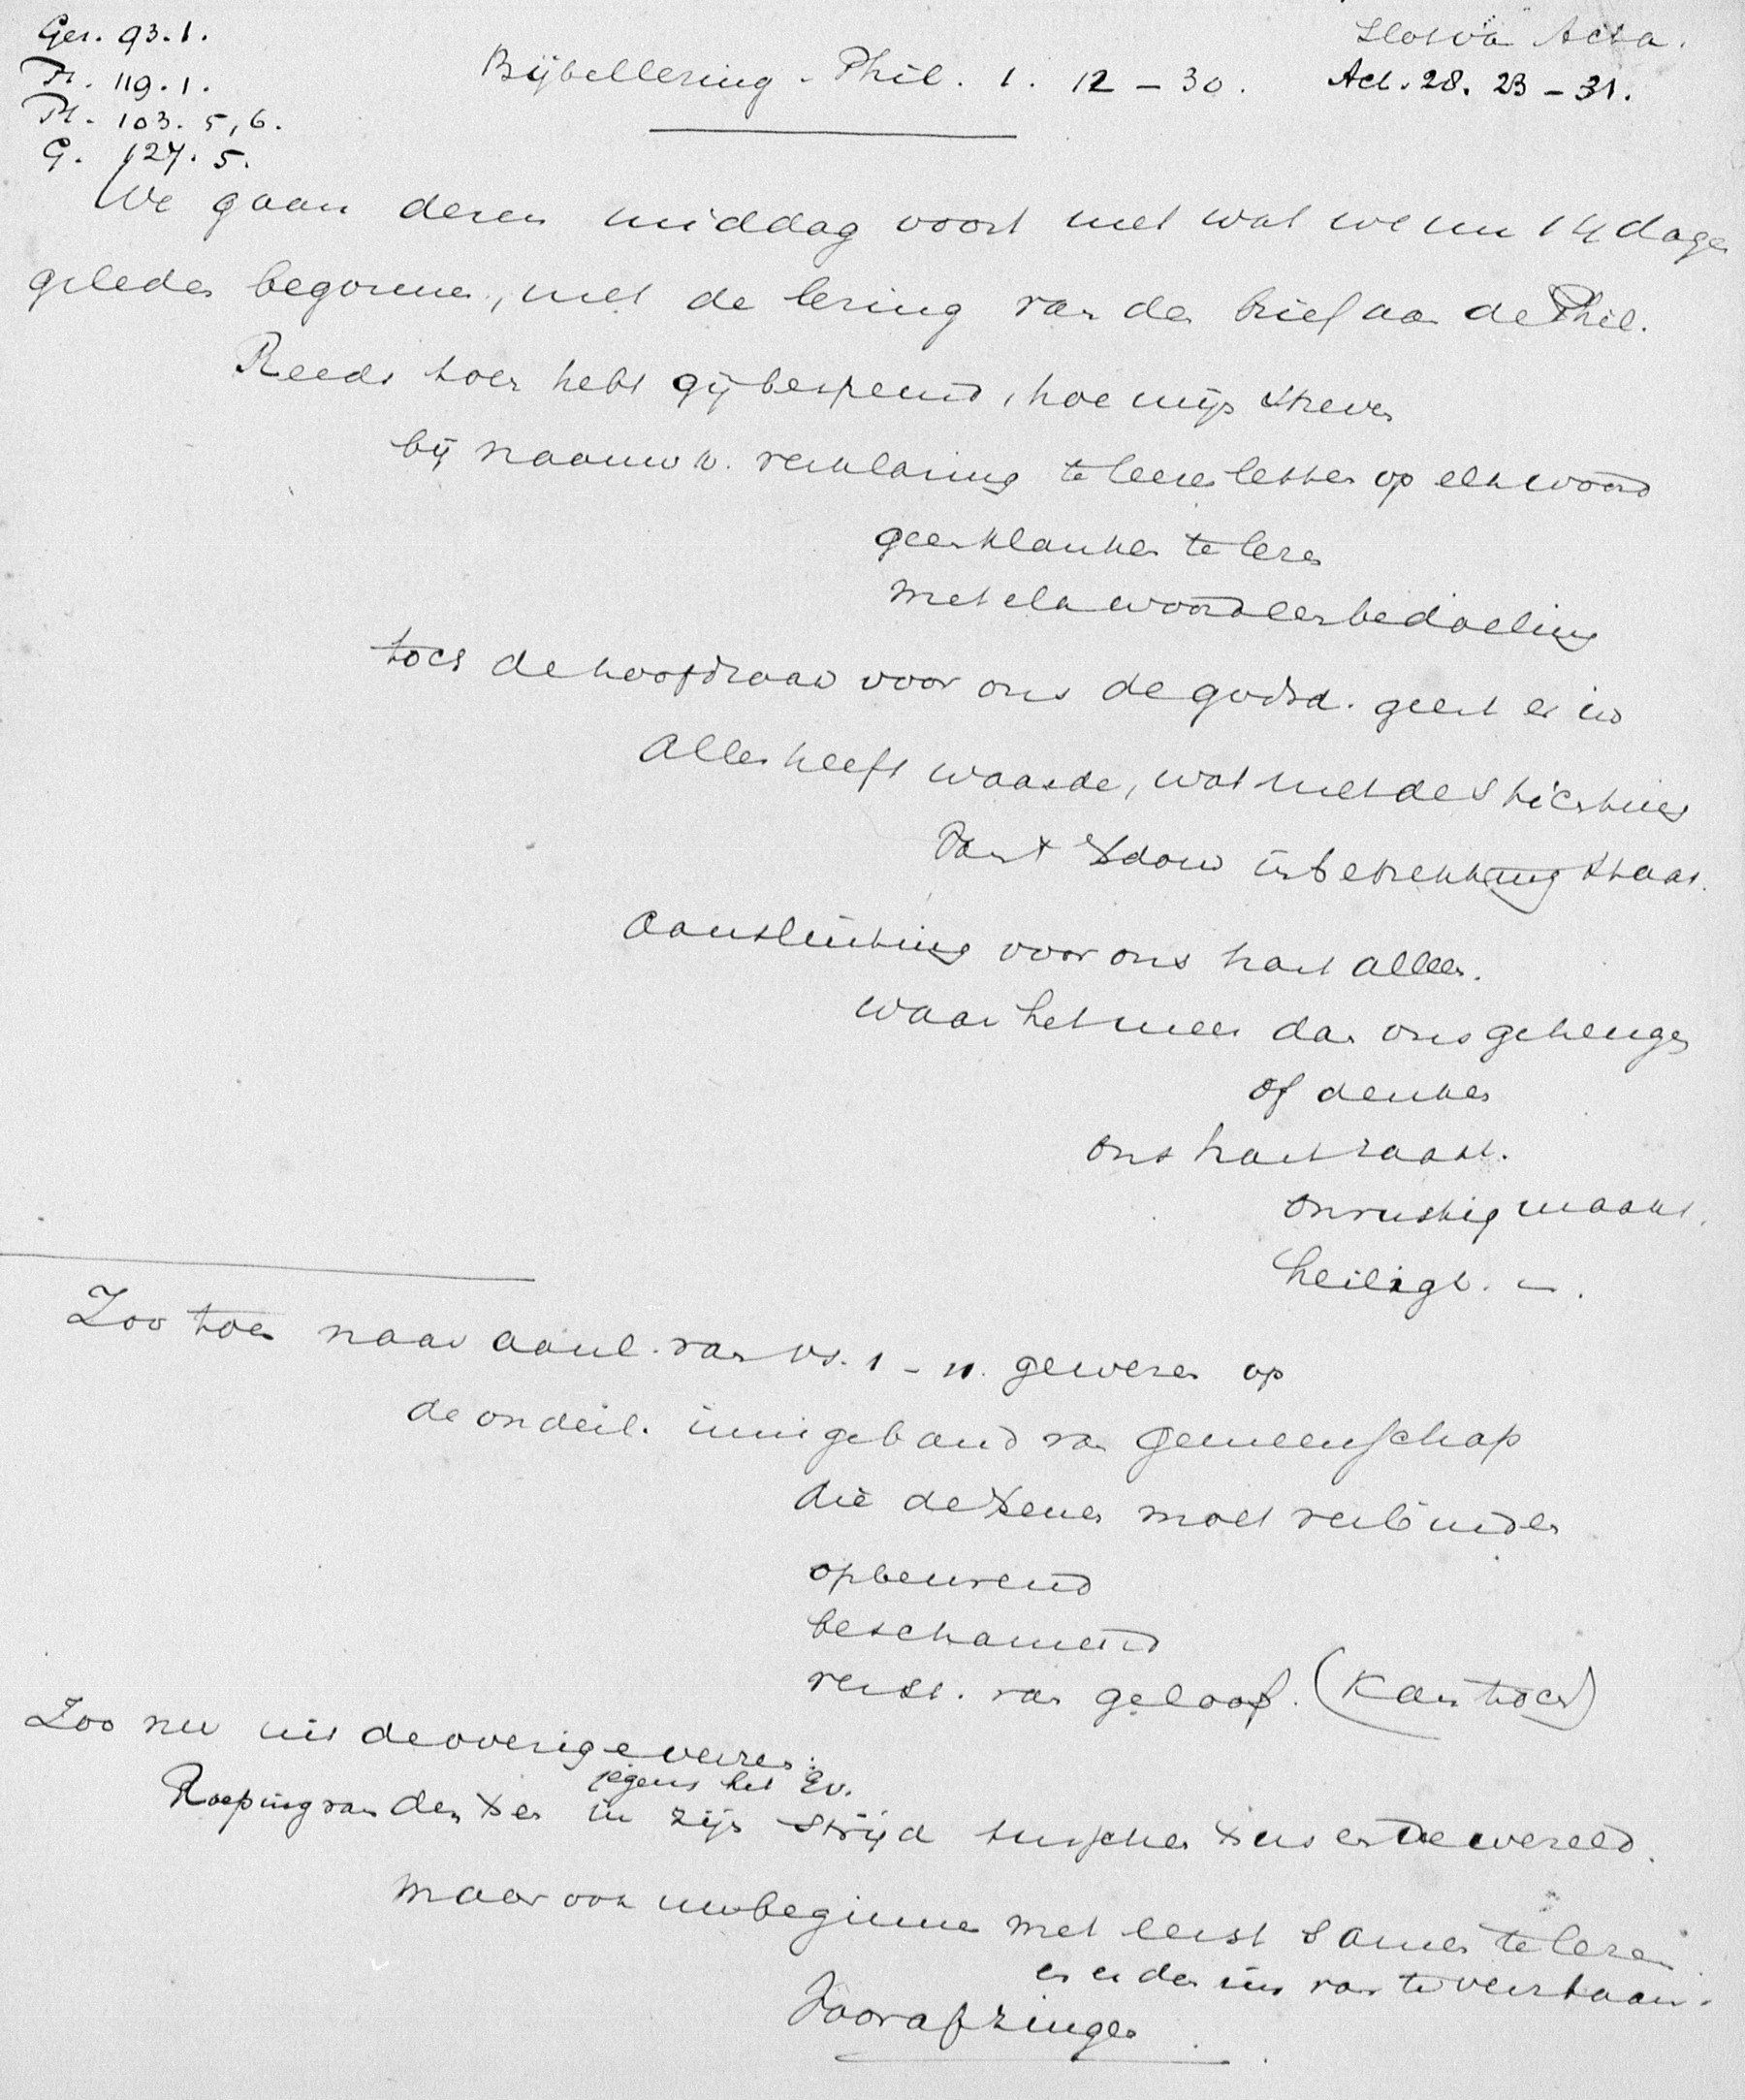 Gez. 93.1.
Ps. 119.1.
Ps. 103. 5,6.
G. 127. 5.
Slot v/a Acta.
Bijbellezing - Phil. 1. 12 - 30. Act. 28. 23 - 31.
We gaan dezen middag voort met wat we nu 14 dagen
geleden begonnen, met de lezing van den brief aan de Phil.
Reeds toen hebt gij bespeurd, hoe mijn streven
bij naauwk. verklaring te leeren letten op elk woord
geen klanken te lezen
met elk woord een bedoeling
toch de hoofdzaak voor ons de godsd. geest er in
Alles heeft waarde, wat met de stichting
van 't Xdom in betrekking staat.
Aansluiting voor ons hart alleen.
waar het meer dan ons geheugen
of denken
ons hart raakt.
onrustig maakt.
heiligt. –.
Zoo toen naar aanl. van vs. 1 - 11. gewezen op
de ondeil. innige band van gemeenschap
die de Xenen moet verbinden
opbeurend
beschamend
verst. van geloof. (Kan toch)
Zoo nu uit de overige verzen:
jegens het Ev.
Roeping van den Xen in zijn strijd tusschen Xus en de wereld.
maar ook nu beginnen met eerst samen te lezen
en er den zin van te verstaan.
Vooraf zingen.